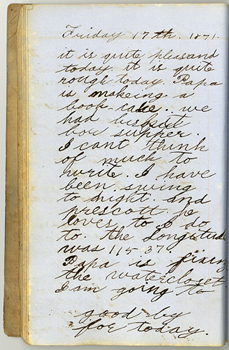 Friday 17th. 1871.
it is quite pleasand
today it is quite
rough today Papa
is makeing a
book case. we
had bisket
for supper.
I cant think
of much to
write. I have
been swing
to night. and
prescott he
loves to I do
to. the Longitude
was 115.37
Papa is fixing
the watercloset
I am going to
good by
for today.